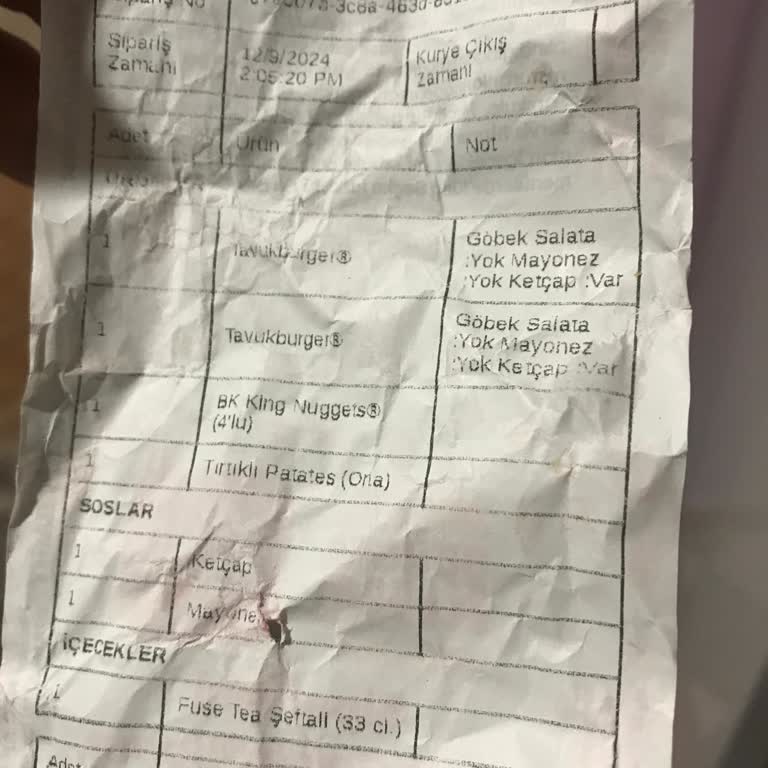 Sipariş No
Sipariş
Zamanı
12/9/2024
2:05:20 PM
Kurye Çıkış
Zamanı
Adet
Ürün
Not
1
Tavukburger®
Göbek Salata
:Yok Mayonez
:Yok Ketçap :Var
1
Tavukburger®
Göbek Salata
:Yok Mayonez
:Yok Ketçap :Var
1
BK King Nuggets®
(4'lü)
1
Tırtıklı Patates (Orta)
SOSLAR
1
Ketçap
1
İÇECEKLER
1
Fuse Tea Şeftali (33 cl.)
Adet